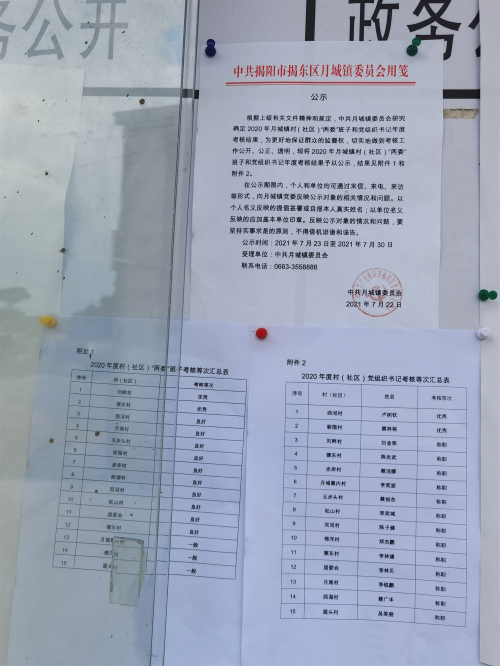 务公开
政务公
中共揭阳市揭东区月城镇委员会用笺
公示
根据上级有关文件精神和规定，中共月城镇委员会研究
确定2020年月城镇村（社区）“两委”班子和党组织书记年度
考核结果，为更好地保证群众的监督权，切实地做到考核工
作公开、公正、透明，现将2020年月城镇村（社区）“两委”
班子和党组织书记年度考核结果予以公示，结果见附件1和
附件2。
在公示期限内，个人和单位均可通过来信、来电、来访
等形式，向月城镇党委反映公示对象的相关情况和问题。以
个人名义反映的提倡签署或自报本人真实姓名；以单位名义
反映的应加盖本单位印章。反映公示对象的情况和问题，要
坚持实事求是的原则，不得借机诽谤和诬告。
公示时间：2021年7月23日至2021年7月30日
受理单位：中共月城镇委员会
联系电话：0663-3558886
中共月城镇委员会
2021年7月22日
附件1
2020年度村（社区）“两委”班子考核等次汇总表
序号 村（社区） 考核等次
1 刘畔村 优秀
2 塘东村 优秀
3 西河村 良好
4 月南村 良好
5 五步头村 良好
6 良好
7 赤岸村 良好
8 良好
9 双河村 良好
10 松山村 良好
11 居委会 良好
12 良好
13 月城 内村 一般
14 一般
15 篮头村 一般
附件2
2020年度村（社区）党组织书记考核等次汇总表
序号 村（社区） 姓名 考核等次
1 西河村 卢树钦 优秀
2 优秀
3 刘畔村 刘金蒂 称职
4 塘东村 称职
5 赤岸村 称职
6 月城寨内村 李奕波 称职
7 五步头村 称职
8 松山村 称职
9 双河村 称职
10 郑志鹏 称职
11 寨东村 李林雄 称职
12 居委会 李林兵 称职
13 月南村 李锐鹏 称职
14 西湖村 蔡广丰 称职
15 篮头村 称职